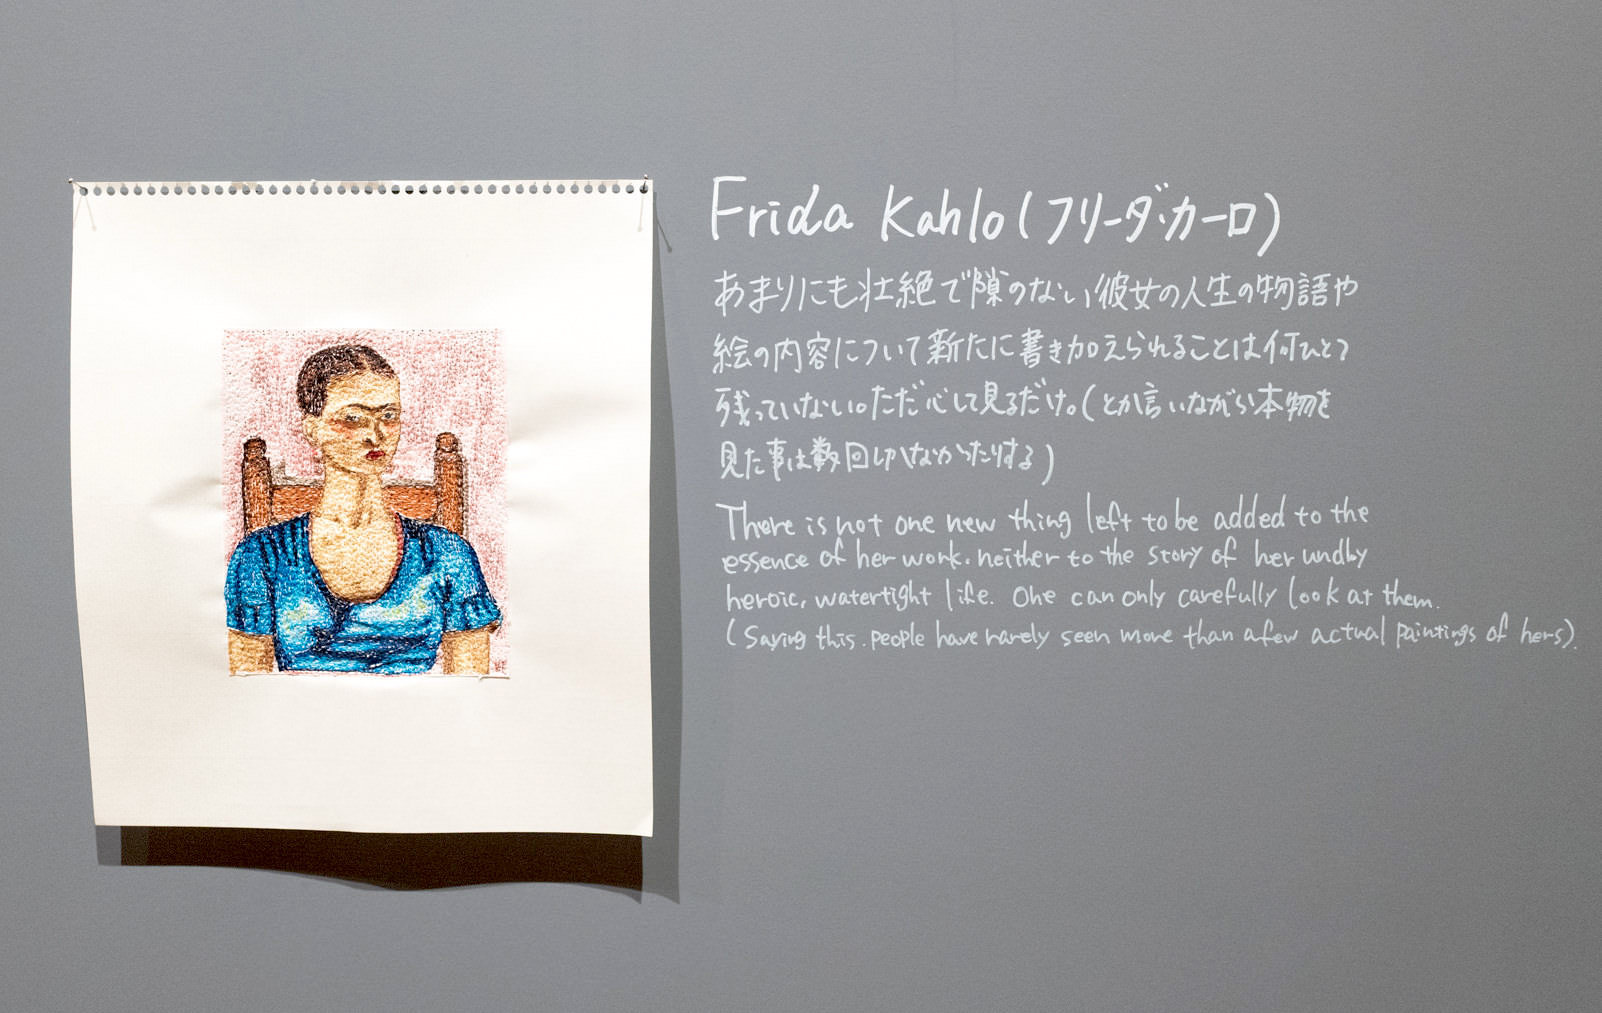 Frida Kahlo(フリーダ・カーロ)
あまりにも壮絶で隙のない彼女の人生の物語や
絵の内容について新たに書き加えられることは何ひとつ
残っていない。ただ心して見るだけ。(とか言いながら本物を
見た事は数回しかなかったりする)
There is not one new thing left to be added to the
essence of her work. neither to the story of her undby
heroic, watertight life. One can only carefully look at them.
(Saying this. people have rarely seen more than a few actual paintings of hers).